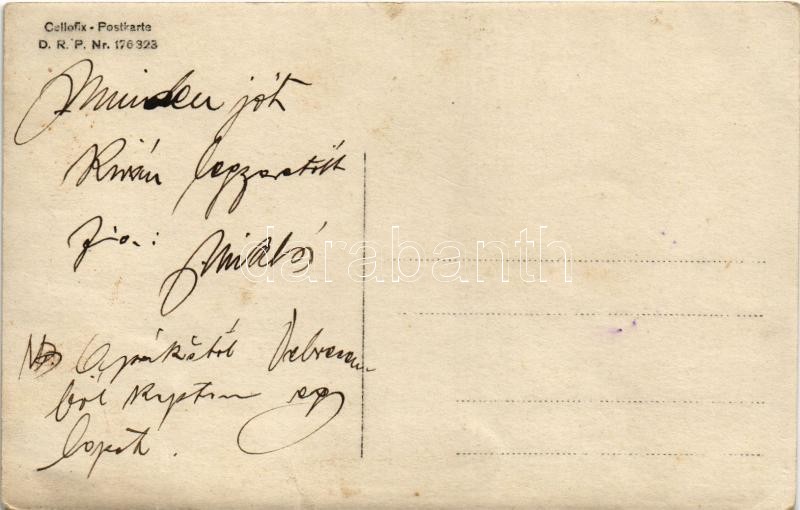 Cellofix - Postkarte
D. R. P. Nr. 176323
Minden jót
Kíván
fia: Miklós
NB. Apukától Debrecen-
ből kaptam egy
lapot.
darabanth